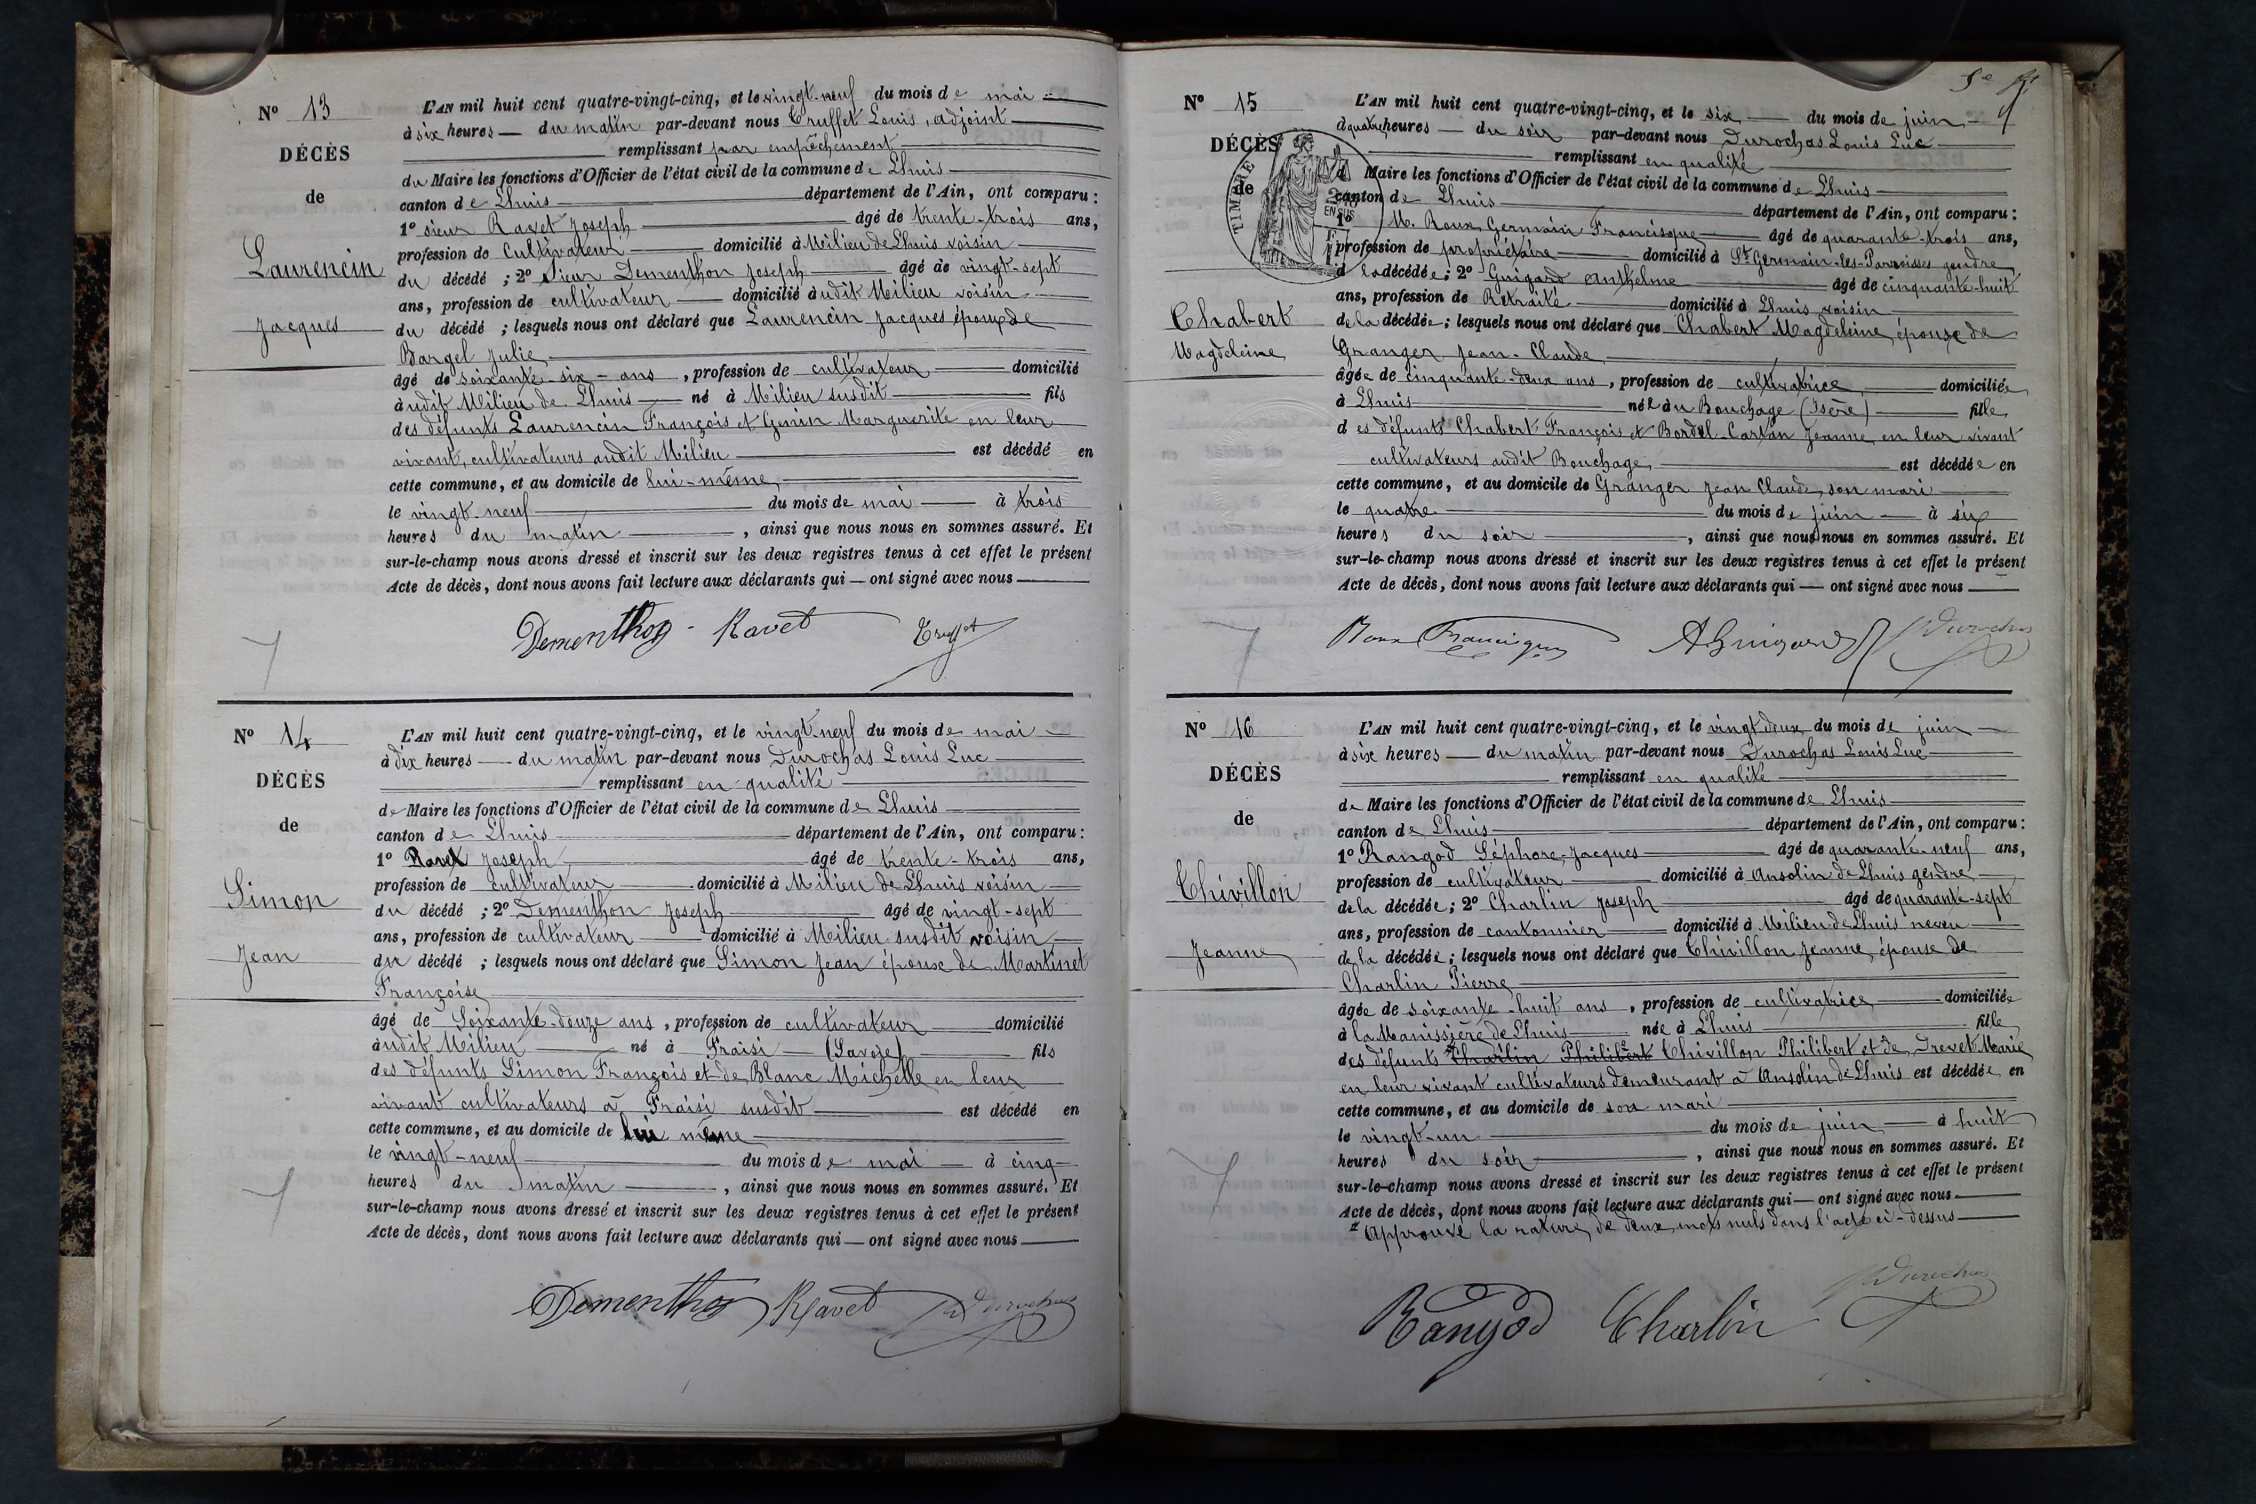 Nº 13
DÉCÈS
de
Laurencin
Jacques
L'AN mil huit cent quatre-vingt-cinq, et le vingt-neuf du mois de mai
à six heures du matin par-devant nous Truffet Louis, adjoint
remplissant par empêchement
du Maire les fonctions d'Officier de l'état civil de la commune de Lhuis
canton de Lhuis département de l'Ain, ont comparu :
1º sieur Ravet Joseph âgé de trente-trois ans,
profession de Cultivateur domicilié à Milieu de Lhuis voisin
du décédé ; 2º Sieur Dementhon Joseph âgé de vingt-sept
ans, profession de cultivateur domicilié àudit Milieu voisin
du décédé ; lesquels nous ont déclaré que Laurencin Jacques époux de
Bargel Julie,
âgé de soixante-six ans, profession de cultivateur domicilié
àudit Milieu de Lhuis né à Milieu susdit fils
des défunts Laurencin François et Genin Marguerite en leur
vivant, cultivateurs audit Milieu est décédé en
cette commune, et au domicile de lui-même,
le vingt-neuf du mois de mai à trois
heures du matin, ainsi que nous nous en sommes assuré. Et
sur-le-champ nous avons dressé et inscrit sur les deux registres tenus à cet effet le présent
Acte de décès, dont nous avons fait lecture aux déclarants qui — ont signé avec nous
Dementhon Ravet Truffet
Nº 14
DÉCÈS
de
Simon
Jean
L'AN mil huit cent quatre-vingt-cinq, et le vingt-neuf du mois de mai
à dix heures du matin par-devant nous Durochas Louis Luc
remplissant en qualité
de Maire les fonctions d'Officier de l'état civil de la commune de Lhuis
canton de Lhuis département de l'Ain, ont comparu :
1º Ravet Joseph âgé de trente-trois ans,
profession de cultivateur domicilié à Milieu de Lhuis voisin
du décédé ; 2º Dementhon Joseph âgé de vingt-sept
ans, profession de cultivateur domicilié à Milieu susdit voisin
du décédé ; lesquels nous ont déclaré que Simon Jean épouse de Martinet
Françoise
âgé de Soixante-douze ans, profession de cultivateur domicilié
àudit Milieu né à Fraisi (Savoie) fils
des défunts Simon François et de Blanc Michelle en leur
vivant cultivateurs à Fraisi susdit est décédé en
cette commune, et au domicile de lui même
le vingt-neuf du mois de mai à cinq
heures du matin, ainsi que nous nous en sommes assuré. Et
sur-le-champ nous avons dressé et inscrit sur les deux registres tenus à cet effet le présent
Acte de décès, dont nous avons fait lecture aux déclarants qui — ont signé avec nous
Dementhon Ravet Durochas
Nº 15
DÉCÈS
de
TIMBRE
EN SUS
Chabert
Magdeleine
L'AN mil huit cent quatre-vingt-cinq, et le six du mois de juin
à quatre heures du soir par-devant nous Durochas Louis Luc
remplissant en qualité
d Maire les fonctions d'Officier de l'état civil de la commune de Lhuis
canton de Lhuis département de l'Ain, ont comparu :
1º M. Roux Germain Francisque âgé de quarante-trois ans,
profession de propriétaire domicilié à St Germain-les-Paroisses gendre
d la décédée ; 2º Guigard Anthelme âgé de cinquante-huit
ans, profession de Retraité domicilié à Lhuis voisin
de la décédée ; lesquels nous ont déclaré que Chabert Magdeleine, épouse de
Granger Jean-Claude,
âgée de cinquante-deux ans, profession de cultivatrice domiciliée
à Lhuis née au Bouchage (Isère) fille
des défunts Chabert François et Bordel-Cartan Jeanne en leur vivant
cultivateurs audit Bouchage, est décédée en
cette commune, et au domicile de Granger Jean Claude, son mari
le quatre du mois de juin à six
heures du soir, ainsi que nous nous en sommes assuré. Et
sur-le-champ nous avons dressé et inscrit sur les deux registres tenus à cet effet le présent
Acte de décès, dont nous avons fait lecture aux déclarants qui — ont signé avec nous
Roux Francisque A Guigard Durochas
Nº 16
DÉCÈS
de
Chivillon
Jeanne
L'AN mil huit cent quatre-vingt-cinq, et le vingt-deux du mois de juin
à six heures du matin par-devant nous Durochas Louis Luc
remplissant en qualité
de Maire les fonctions d'Officier de l'état civil de la commune de Lhuis
canton de Lhuis département de l'Ain, ont comparu :
1º Rangod Séphore-Jacques âgé de quarante-neuf ans,
profession de cultivateur domicilié à Ansolin de Lhuis gendre
de la décédée ; 2º Charlin Joseph âgé de quarante-sept
ans, profession de cantonnier domicilié à Milieu de Lhuis neveu
de la décédée ; lesquels nous ont déclaré que Chivillon Jeanne, épouse de
Charlin Pierre
âgée de soixante-huit ans, profession de cultivatrice domiciliée
à la Manissière de Lhuis née à Lhuis fille
des défunts Charlin Philibert Chivillon Philibert et de Drevet Marie
en leur vivant cultivateurs demeurant à Ansolin de Lhuis est décédée en
cette commune, et au domicile de son mari
le vingt-un du mois de juin à huit
heures du soir, ainsi que nous nous en sommes assuré. Et
sur-le-champ nous avons dressé et inscrit sur les deux registres tenus à cet effet le présent
Acte de décès, dont nous avons fait lecture aux déclarants qui — ont signé avec nous
Approuvé la rature de deux mots nuls dans l'acte ci-dessus
Rangod Charlin Durochas